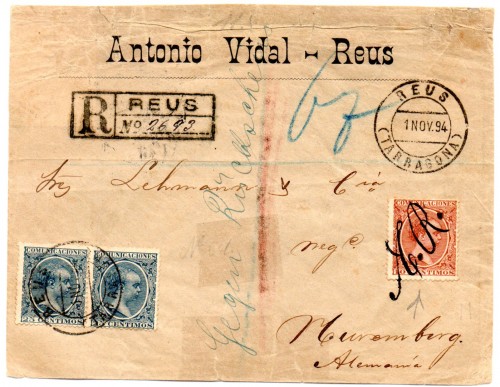 Antonio Vidal - Reus
R REUS
No 2693
REUS
1 NOV. 94
(TARRAGONA)
Gegen Rückschein
Lehmann y Cia
COMUNICACIONES
A. R.
10 CENTIMOS
COMUNICACIONES
COMUNICACIONES
25 CENTIMOS
25 CENTIMOS
REUS
Negte.
Nuremberg.
Alemania.